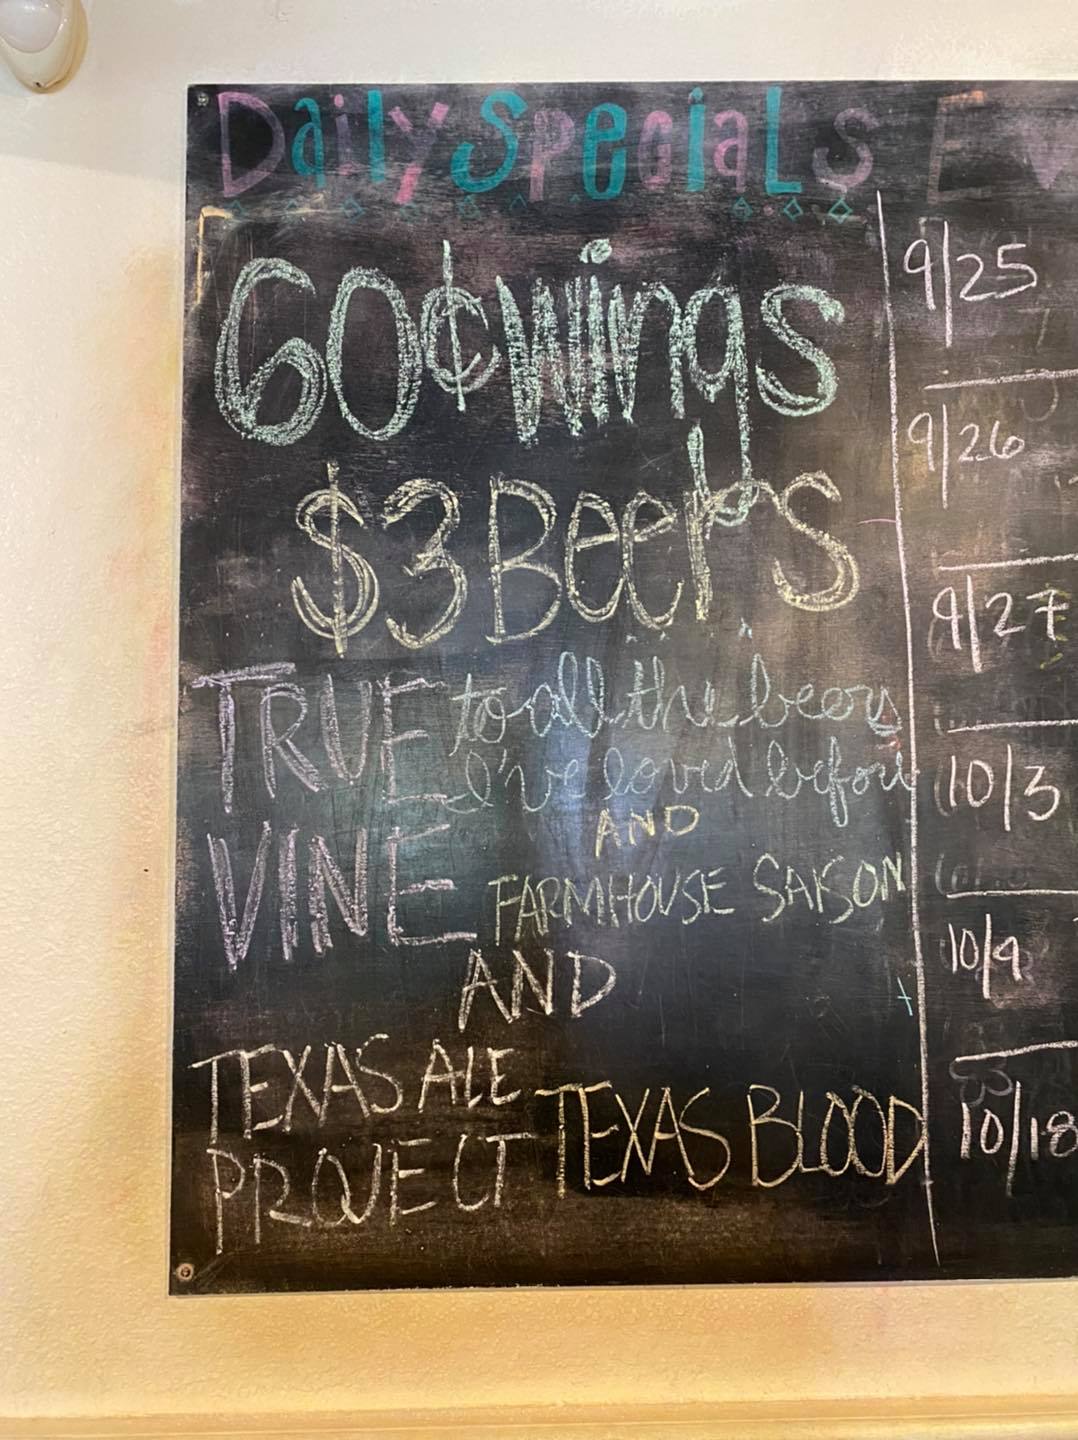 Daily Specials
60¢ Wings
$3 Beers
TRUE to all the beers
I've loved before
AND
VINE FARMHOUSE SAISON
AND
TEXAS ALE
PROJECT TEXAS BLOOD
E
9/25
9/26
9/27
10/3
10/9
10/18